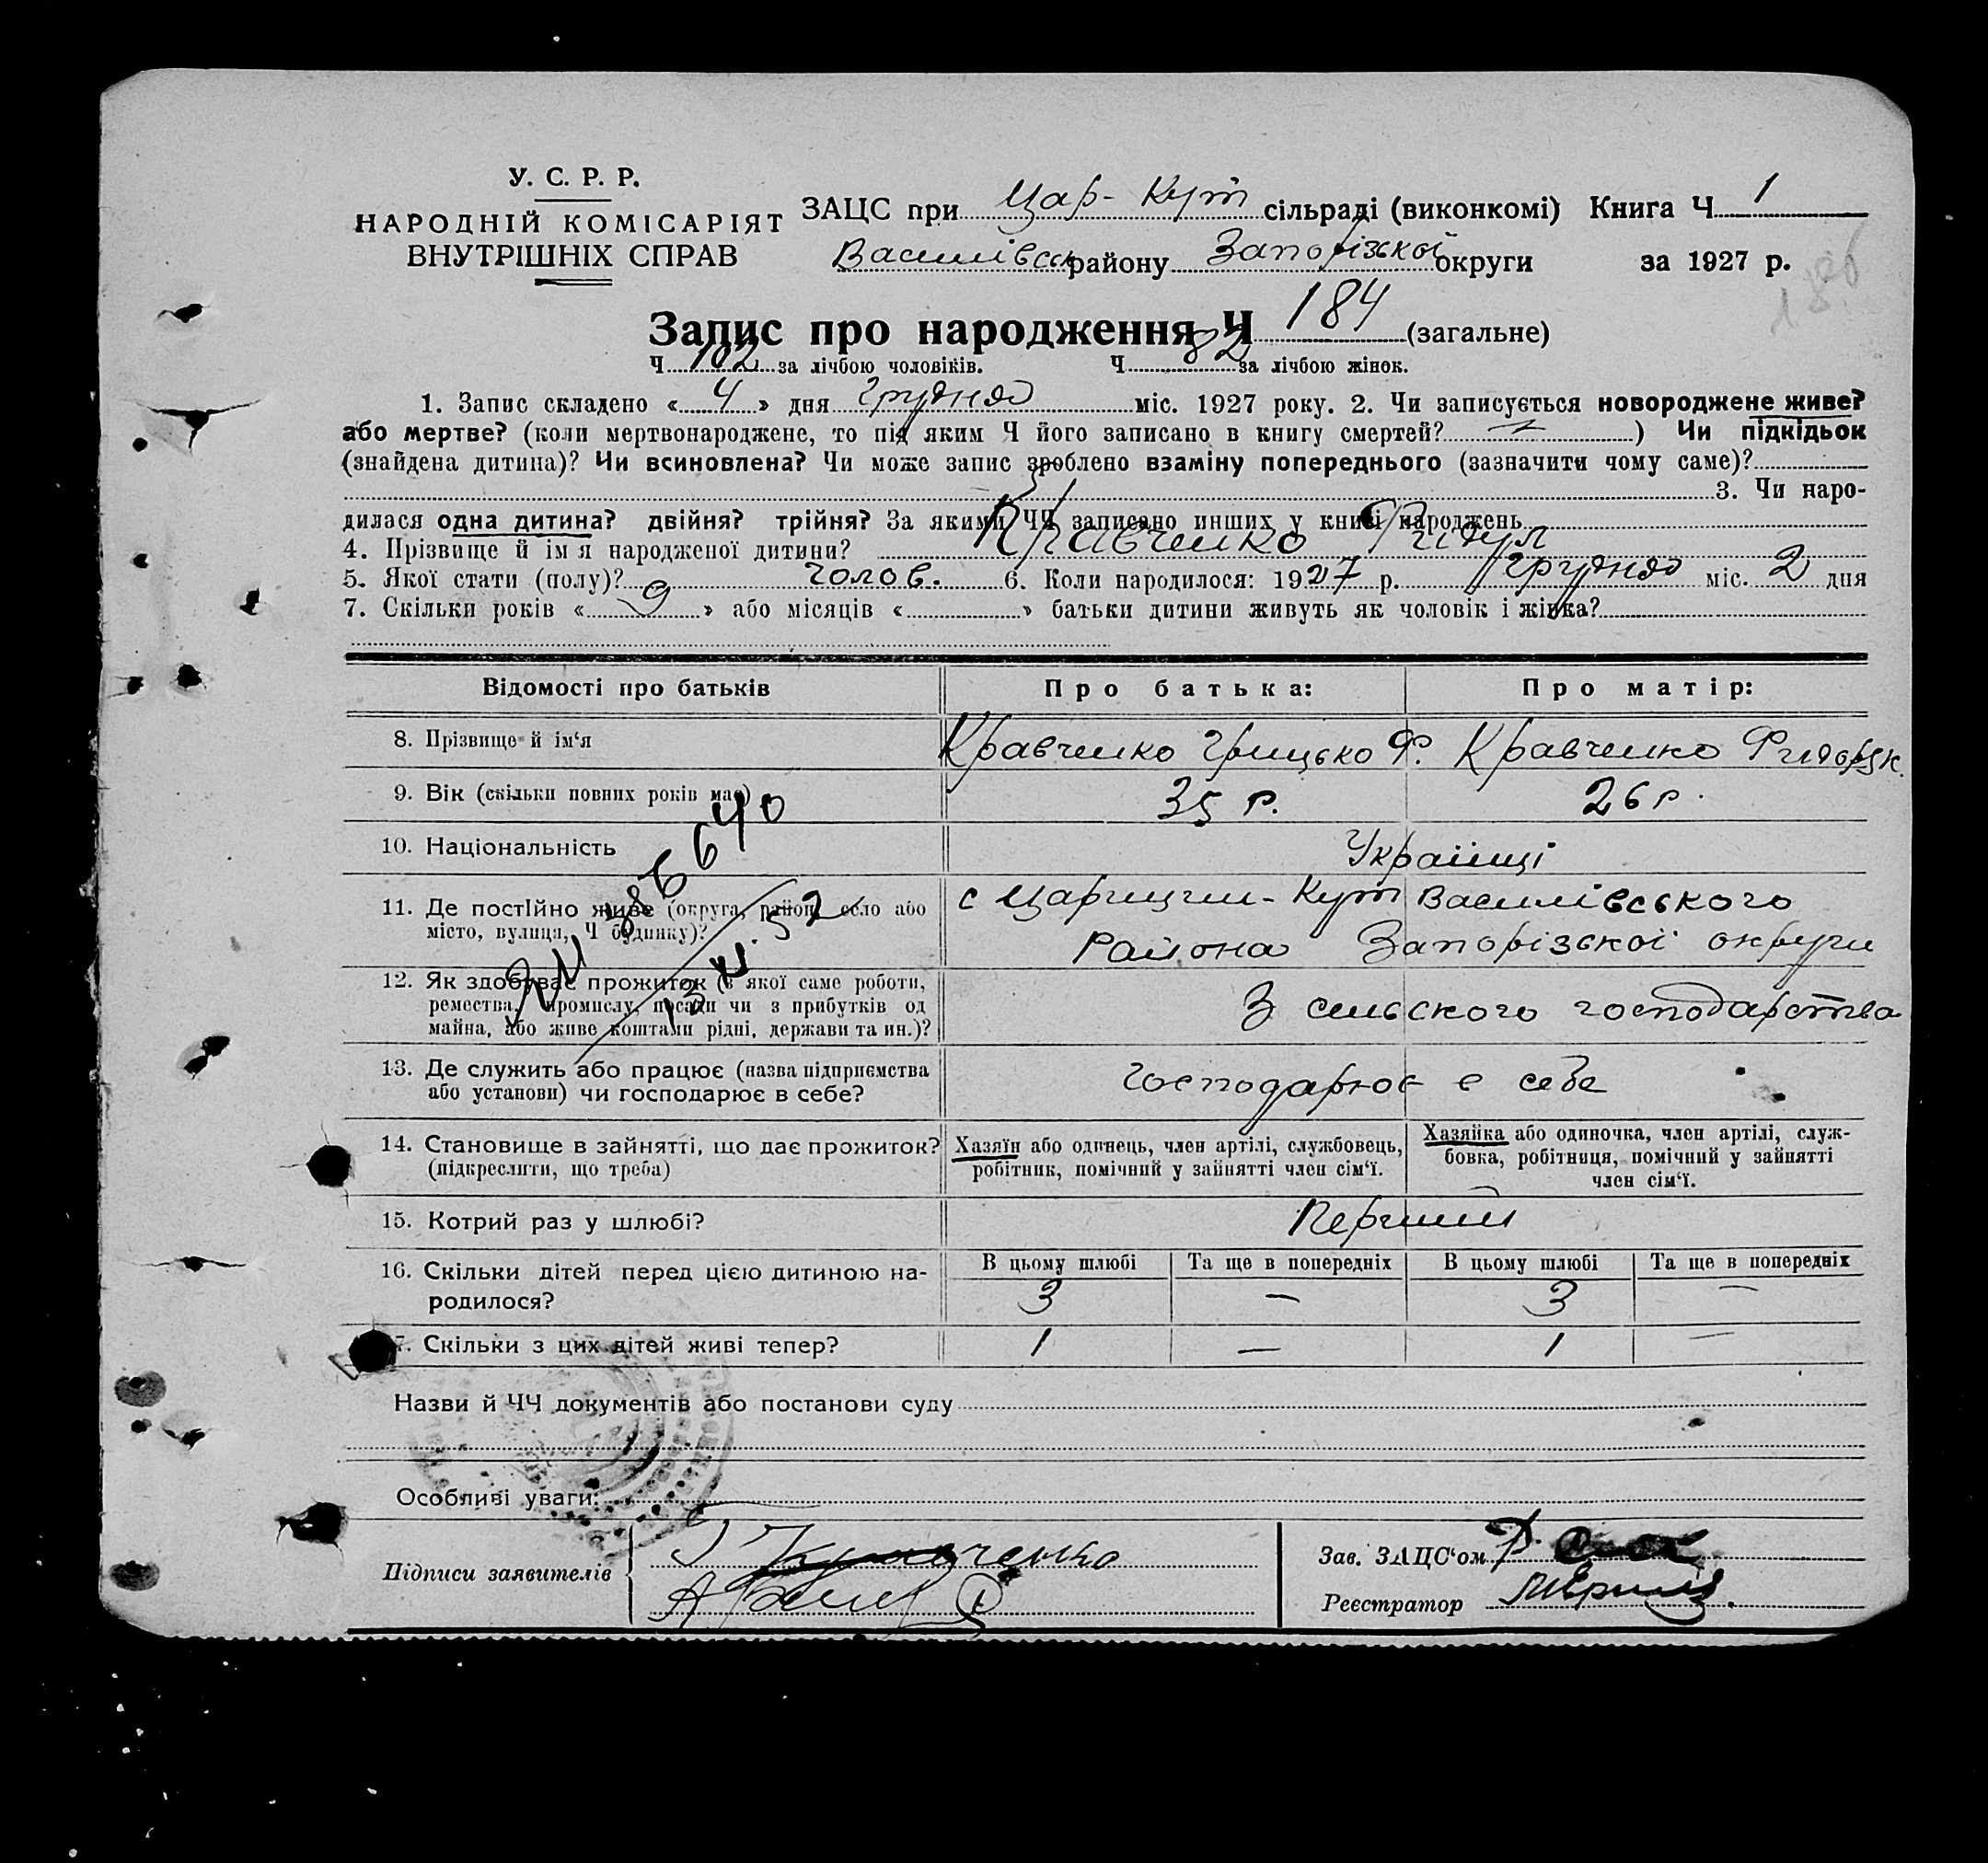 У. С. Р. Р.
НАРОДНІЙ КОМІСАРІЯТ
ВНУТРІШНІХ СПРАВ
ЗАЦС при Цар-Кут сільраді (виконкомі) Книга Ч 1
Василівськ району Запорізької округи за 1927 р.
Запис про народження Ч 184 (загальне)
Ч 102 за лічбою чоловіків. Ч 82 за лічбою жінок.
1. Запис складено «4» дня грудня міс. 1927 року. 2. Чи записується новороджене живе?
або мертве? (коли мертвонароджене, то під яким Ч його записано в книгу смертей? —) Чи підкідьок
(знайдена дитина)? Чи всиновлена? Чи може запис зроблено взаміну попереднього (зазначити чому саме)?
3. Чи наро-
дилася одна дитина? двійня? трійня? За якими ЧЧ записано инших у книзі народжень
4. Прізвище й імя народженої дитини? Кравченко
5. Якої стати (полу)? голов. 6. Коли народилося: 1927 р. грудня міс. 2 дня
7. Скільки років «9» або місяців « » батьки дитини живуть як чоловік і жінка?
Відомості про батьків Про батька: Про матір:
8. Прізвище й ім‘я Кравченко Грицько Ф. Кравченко
9. Вік (скільки повних років має) 35 р. 26 р.
10. Національність Українці
11. Де постІйно живе (округа, район, село або с Царицин-Кут Василівського
місто, вулиця, Ч будинку)? Района Запорізської округи
12. Як здобуває прожиток (з якої саме роботи,
ремества, промислу, посади чи з прибутків од З сельского господарства
майна, або живе коштами рідні, держави та ин.)?
13. Де служить або працює (назва підприємства Господарює в себе
або установи) чи господарює в себе?
14. Становище в зайнятті, що дає прожиток? Хазяїн або одинець, член артілі, службовець, Хазяйка або одиночка, член артілі, служ-
(підкреслити, що треба) робітник, помічний у зайнятті член сім‘ї. бовка, робітниця, помічний у зайнятті
член сім‘ї.
15. Котрий раз у шлюбі? Перший
16. Скільки дітей перед цією дитиною на- В цьому шлюбі Та ще в попередніх В цьому шлюбі Та ще в попередніх
родилося? 3 — 3 —
7. Скільки з цих дітей живі тепер? 1 — 1 —
13 XI. 52
Назви й ЧЧ документів або постанови суду
Особливі уваги:
Підписи заявителів Г Кравченко
Зав. ЗАЦС‘ом
Реєстратор